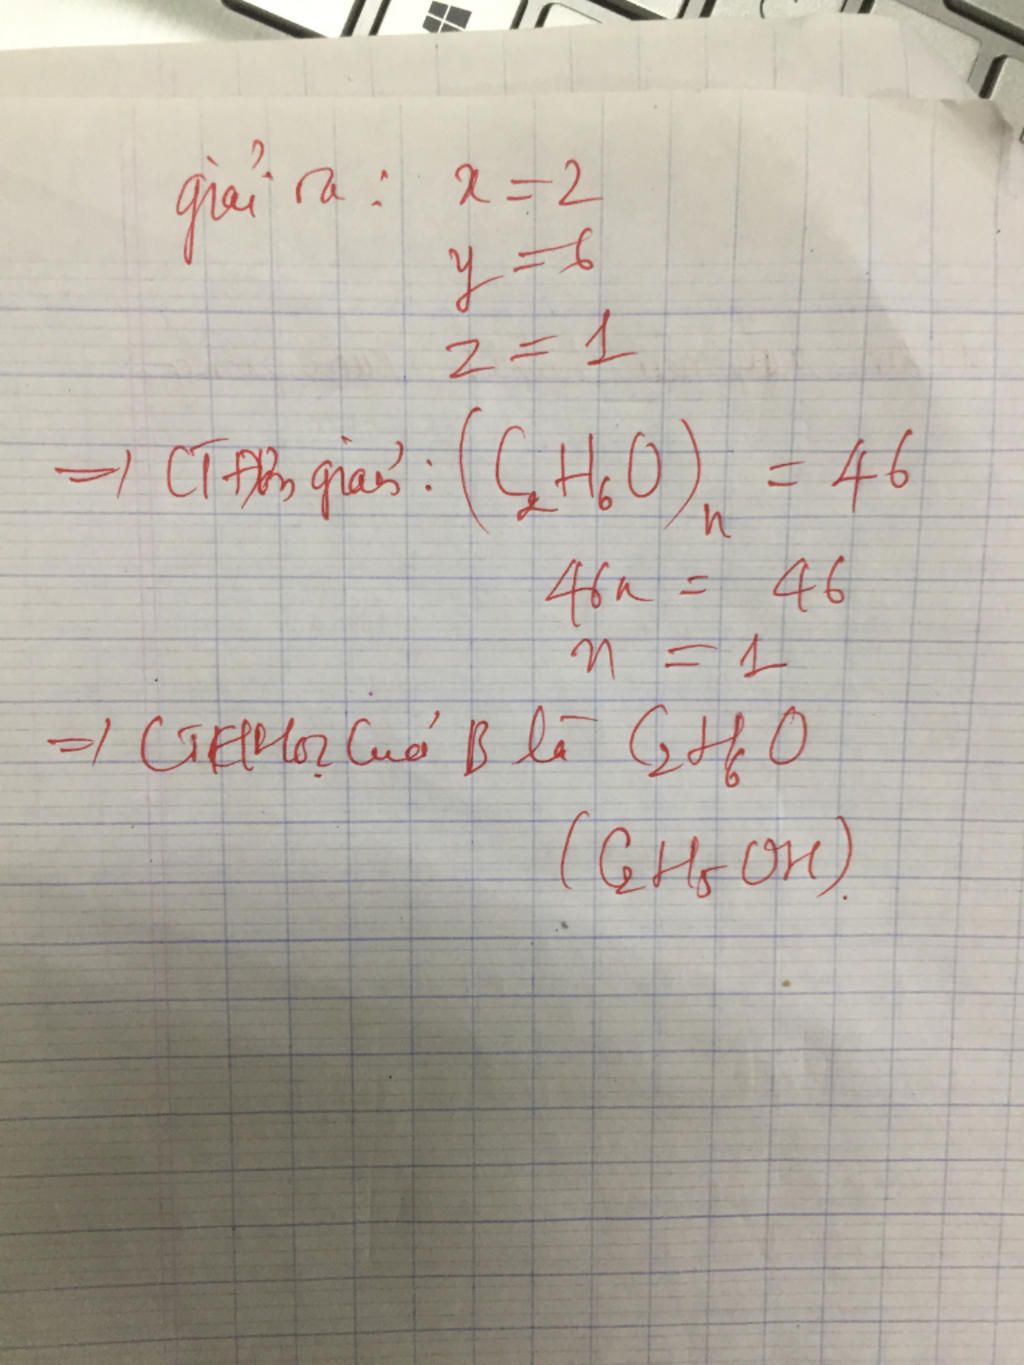 giải ra: x = 2
y = 6
z = 1
=> CT Đơn giản: (C₂H₆O)ₙ = 46
46n = 46
n = 1
=> CTHHọc của B là C₂H₆O
(C₂H₅OH).